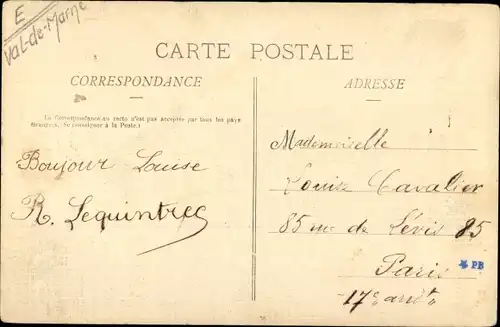 E
Val-de-Marne
CARTE POSTALE
CORRESPONDANCE
ADRESSE
La Correspondance au recto n'est pas acceptée par tous les pays
étrangers. (Se renseigner à la Poste.)
Mademoiselle
Boujour Louise
Louise Cavalier
R. Lequintrec
85 rue de Lévis 85
Paris
* PB
17e arrdt